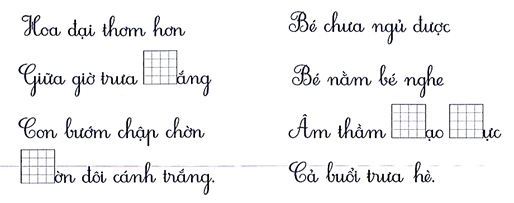 Hoa dại thơm hơn
Giữa giờ trưa ắng
Con bướm chập chờn
ờn đôi cánh trắng.
Bé chưa ngủ được
Bé nằm bé nghe
Âm thầm ạo ực
Cả buổi trưa hè.